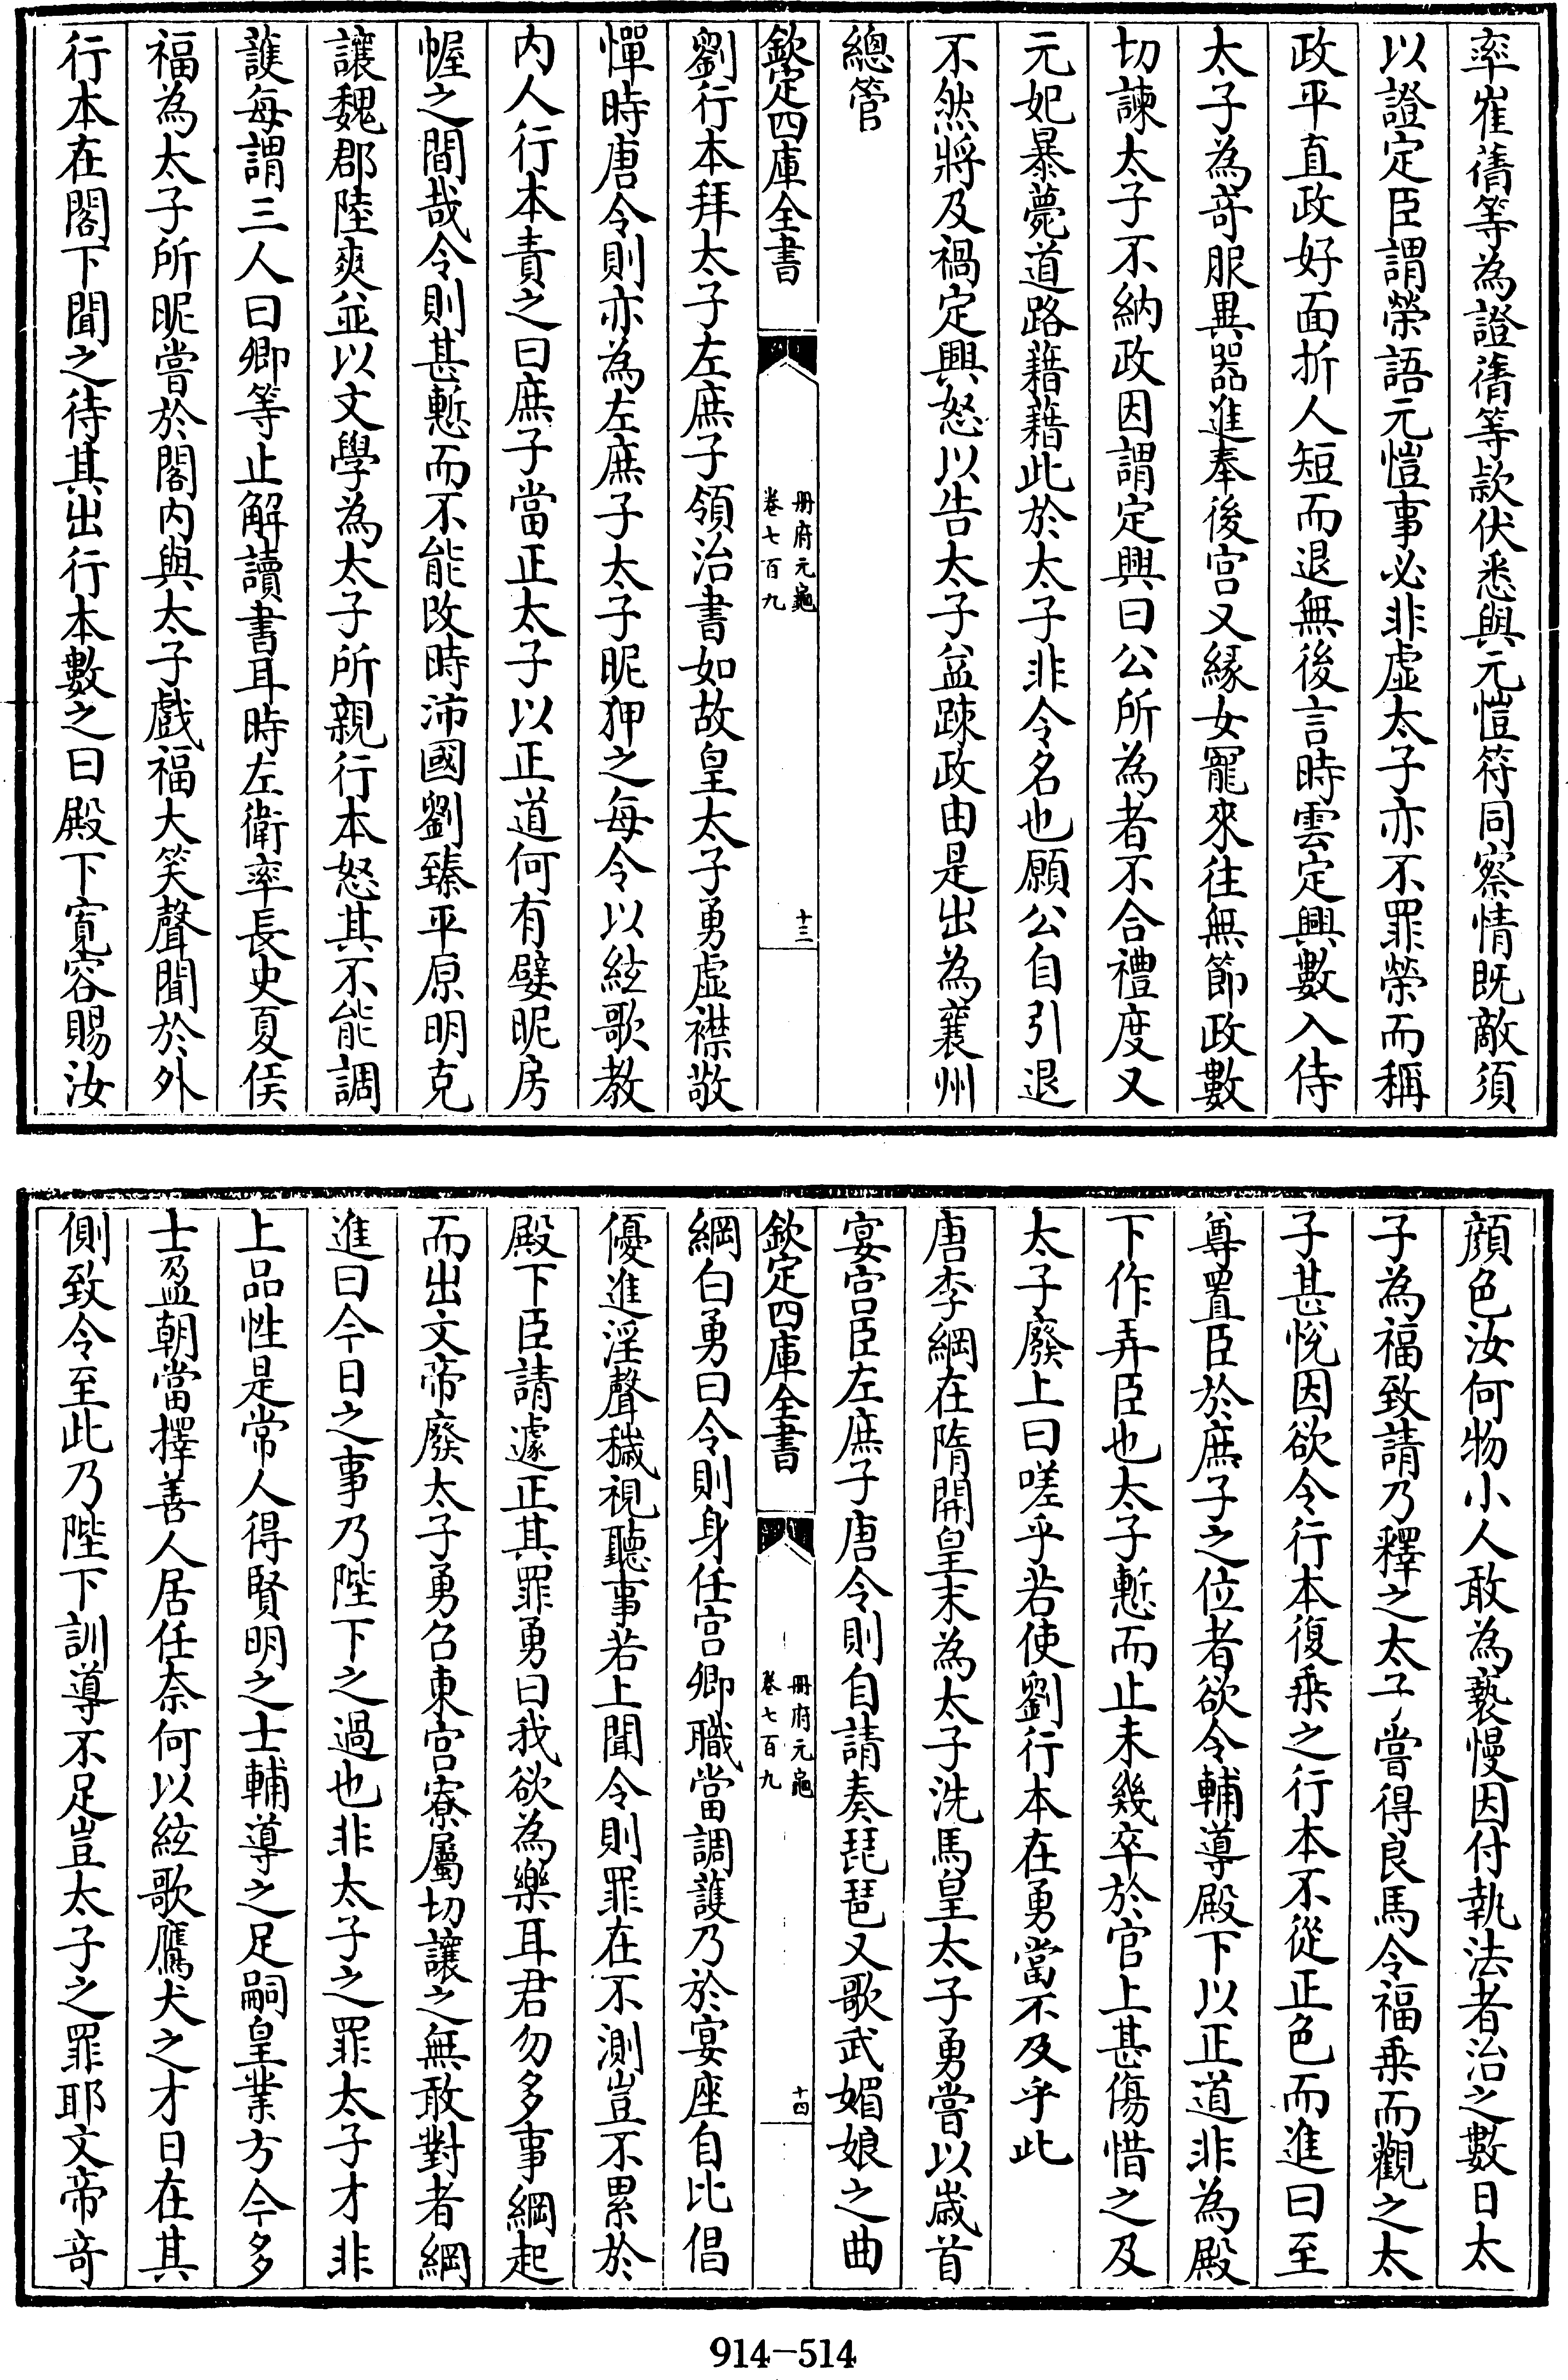 率崔蒨等為證蒨等款伏悉與元愷符同察情既敵須
以證定臣謂榮語元愷事必非虛太子亦不罪榮而稱
政平直政好面折人短而退無後言時雲定興數入侍
太子為苛服異器進奉後宮又緣女寵來往無節政數
切諫太子不納政因謂定興曰公所為者不合禮度又
元妃暴薨道路藉藉此於太子非令名也願公自引退
不然將及禍定興怒以告太子益踈政由是出為襄州
總管
欽定四庫全書
冊府元龜
卷七百九
十三
劉行本拜太子左庶子領治書如故皇太子勇虛襟敬
憚時唐令則亦為左庶子太子昵狎之每令以絃歌教
内人行本責之曰庶子當正太子以正道何有嬖昵房
幄之間哉令則甚慙而不能改時沛國劉臻平原明克
讓魏郡陸爽並以文學為太子所親行本怒其不能調
䕶每謂三人曰卿等止解讀書耳時左衛率長史夏侯
福為太子所昵嘗於閤内與太子戲福大笑聲聞於外
行本在閤下聞之待其出行本數之曰殿下寛容賜汝
顔色汝何物小人敢為褻慢因付執法者治之數日太
子為福致請乃釋之太子嘗得良馬令福乗而觀之太
子甚悅因欲令行本復乗之行本不從正色而進曰至
尊置臣於庶子之位者欲令輔導殿下以正道非為殿
下作弄臣也太子慙而止未幾卒於官上甚傷惜之及
太子廢上曰嗟乎若使劉行本在勇當不及乎此
唐李綱在隋開皇末為太子洗馬皇太子勇嘗以歲首
宴宮臣左庶子唐令則自請奏琵琶又歌武媚娘之曲
欽定四庫全書
冊府元龜
卷七百九
十四
綱白勇曰令則身任宮卿職當調䕶乃於宴座自比倡
優進淫聲穢視聽事若上聞令則罪在不測豈不累於
殿下臣請遽正其罪勇曰我欲為樂耳君勿多事綱起
而出文帝廢太子勇召東宮寮屬切讓之無敢對者綱
進曰今日之事乃陛下之過也非太子之罪太子才非
上品性是常人得賢明之士輔導之足嗣皇業方今多
士盈朝當擇善人居任奈何以絃歌鷹犬之才日在其
側致令至此乃陛下訓導不足豈太子之罪耶文帝竒
914-514